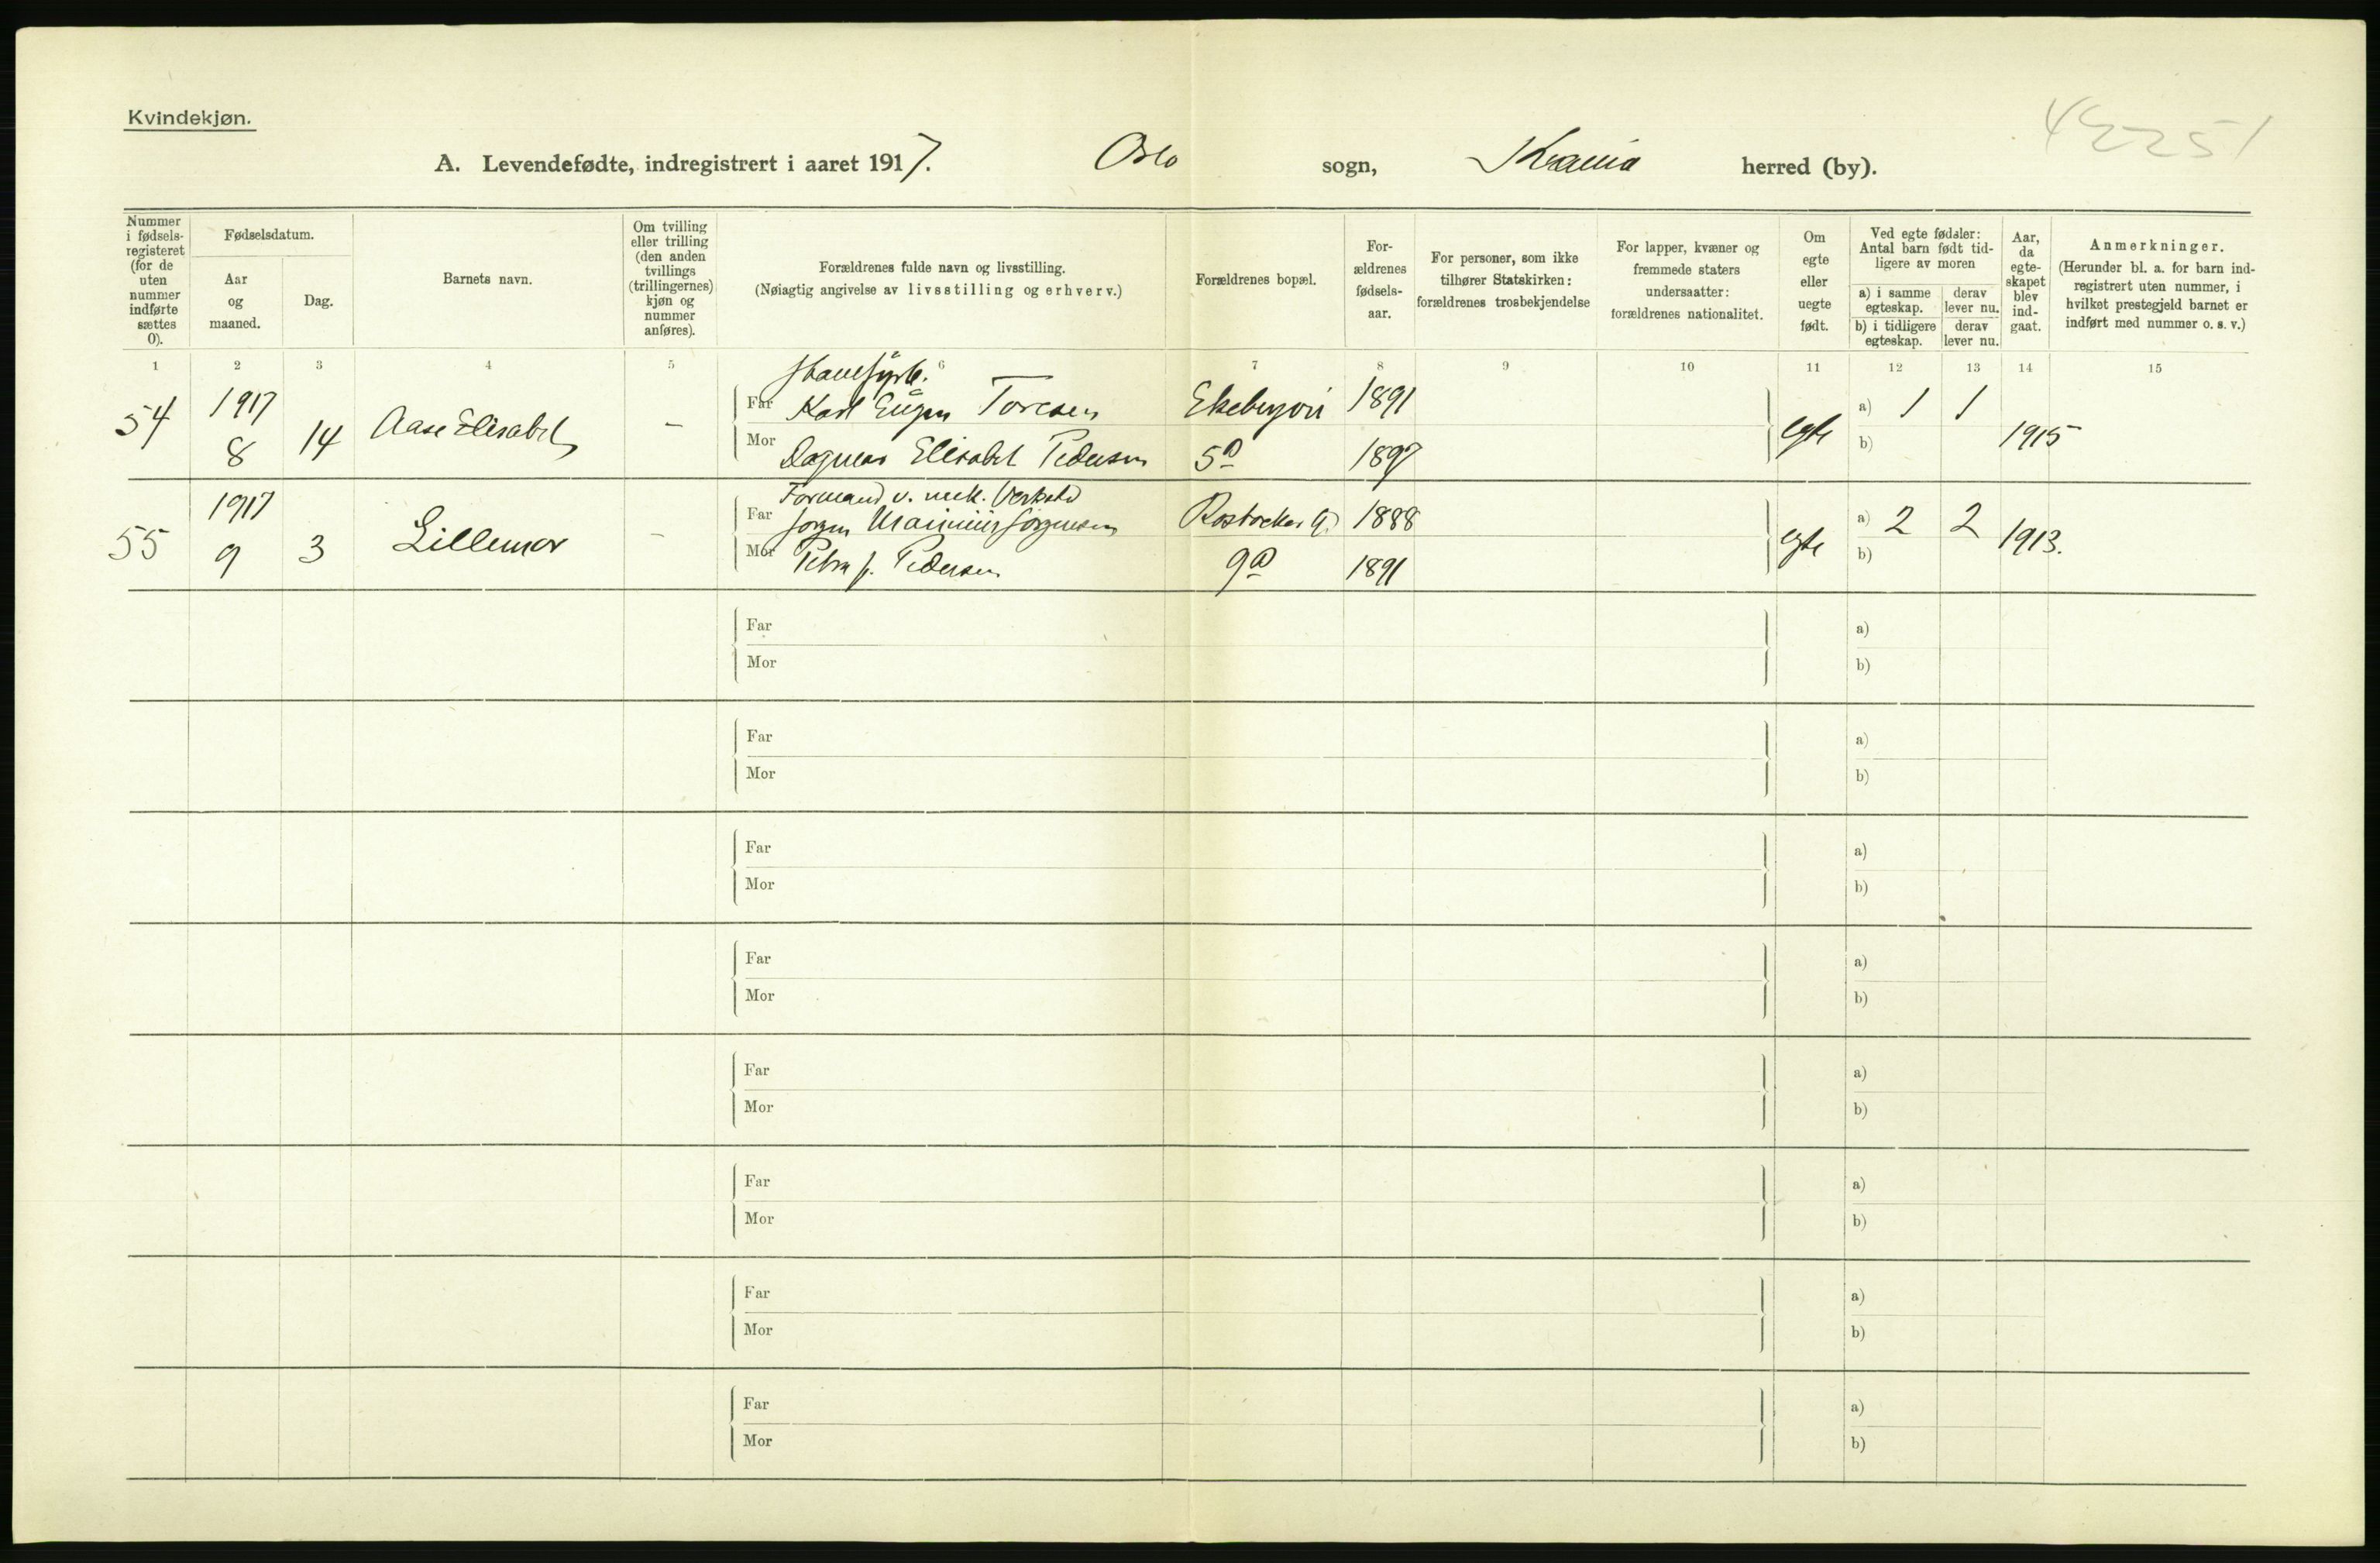 Kvindekjøn.
42251
A. Levendefødte, indregistrert i aaret 1917. Oslo sogn, Krania herred (by).
Nummer i fødsels-registeret (for de uten nummer indførte sættes 0).
Fødselsdatum.
Aar og maaned.
Dag.
Barnets navn.
Om tvilling eller trilling (den anden tvillings (trillingernes) kjøn og nummer anføres).
Forældrenes fulde navn og livsstilling.
(Nøiagtig angivelse av livsstilling og erhverv.)
Forældrenes bopæl.
For-ældrenes fødsels-aar.
For personer, som ikke tilhører Statskirken: forældrenes trosbekjendelse
For lapper, kvæner og fremmede staters undersaatter: forældrenes nationalitet.
Om egte eller uegte født.
Ved egte fødsler: Antal barn født tid-ligere av moren
a) i samme egteskap.
derav lever nu.
b) i tidligere egteskap.
derav lever nu.
Aar, da egte-skapet blev ind-gaat.
Anmerkninger.
(Herunder bl. a. for barn ind-registrert uten nummer, i hvilket prestegjeld barnet er indført med nummer o. s. v.)
1 2 3 4 5 6 7 8 9 10 11 12 13 14 15
54 1917 8 14 Aase Elisabet –
Far Karl Eugen Toresen Ekebergvei 1891
Mor Dagmar Elisabet Pedersen 5D 1897
egte a) 1 1 b) 1915
55 1917 9 3 Lillemor –
Formand v. mek. Verksted
Far Jørgen Jørgensen Rostocker G. 1888
Mor Petra f. Pedersen 9D 1891
egte a) 2 2 b) 1913.
Far a)
Mor b)
Far a)
Mor b)
Far a)
Mor b)
Far a)
Mor b)
Far a)
Mor b)
Far a)
Mor b)
Far a)
Mor b)
Far a)
Mor b)